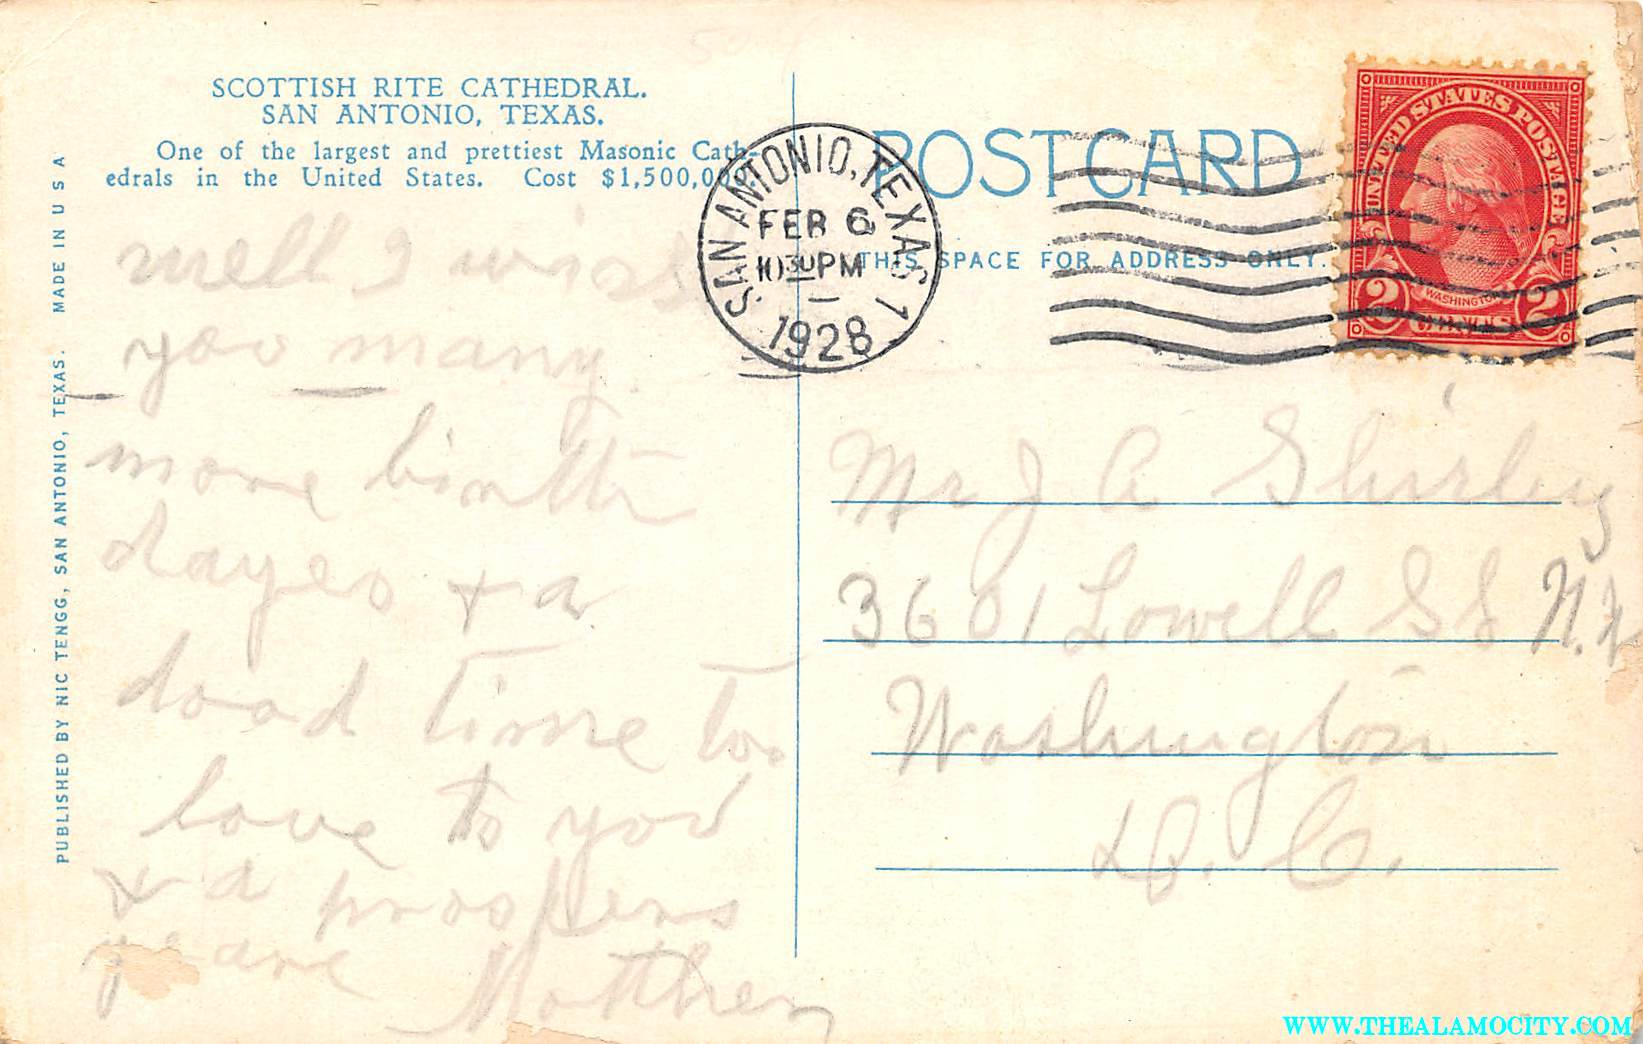 SCOTTISH RITE CATHEDRAL.
SAN ANTONIO, TEXAS.
One of the largest and prettiest Masonic Cath-
edrals in the United States. Cost $1,500,000.
well I wish
you many
more birth
dayes + a
dood time too
love to you
+ a prospers
yeare Mother
PUBLISHED BY NIC TENGG, SAN ANTONIO, TEXAS. MADE IN U S A
SAN ANTONIO, TEXAS 1
FEB 6
10 30 PM
1928
POSTCARD
THIS SPACE FOR ADDRESS ONLY.
UNITED STATES POSTAGE
WASHINGTON
2 CENTS 2
Mr J A Shirley
3601 Lowell St N.W.
Washington
D. C.
WWW.THEALAMOCITY.COM